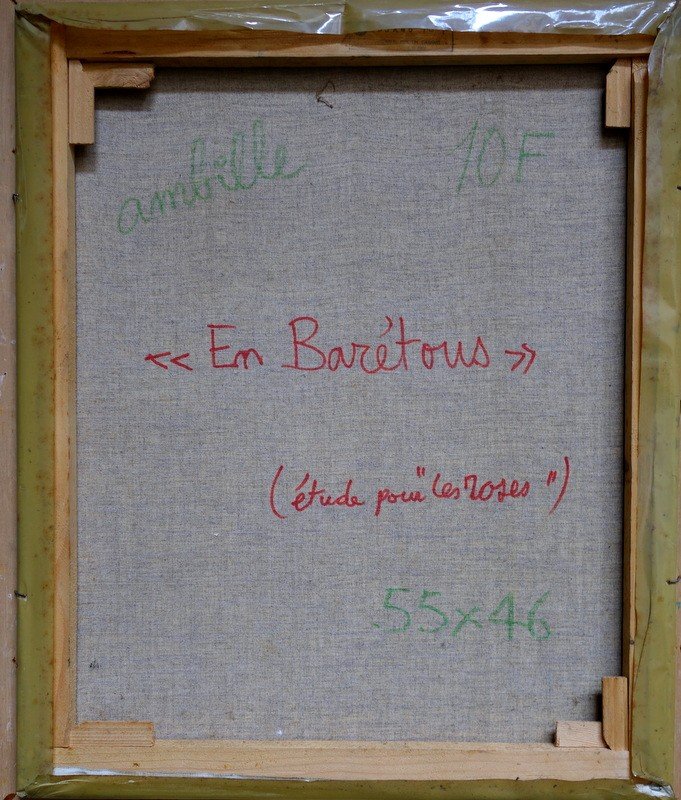 ambille 10F
« En Barétous »
(étude pour "les roses")
55x46